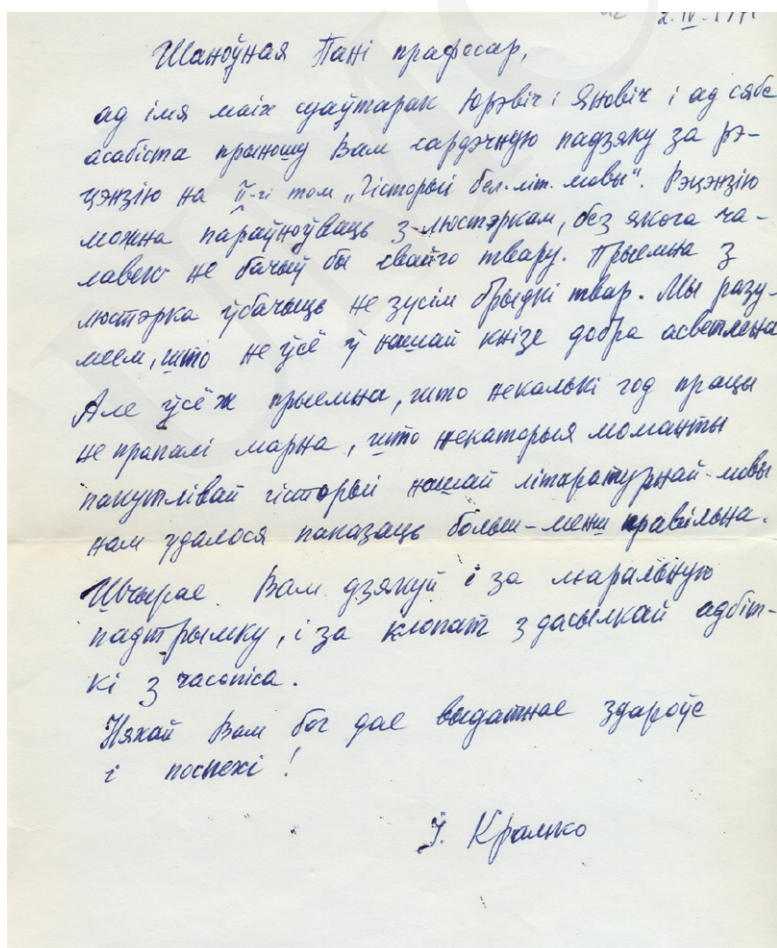 2.IV.1971
Шаноўная Пані прафесар,
ад імя маіх суаўтарак Юрэвіч і Яновіч і ад сябе
асабіста прыношу Вам сардэчную падзяку за рэ-
цэнзію на ІІ-гі том „Гісторыі бел. літ. мовы“. Рэцэнзію
можна параўноўваць з люстэркам, без якога ча-
лавек не бачыў бы свайго твару. Прыемна з
люстэрка ўбачыць не зусім брыдкі твар. Мы разу-
меем, што не ўсё ў нашай кнізе добра асветлена
Але ўсё ж прыемна, што некалькі год працы
не прапалі марна, што некаторыя моманты
пакутлівай гісторыі нашай літаратурнай мовы
нам удалося паказаць больш-менш правільна.
Шчырае Вам дзякуй і за маральную
падтрымку, і за клопат з дасылкай адбіт-
кі з часопіса.
Няхай Вам бог дае выдатнае здароўе
і поспехі!
І. Крамко